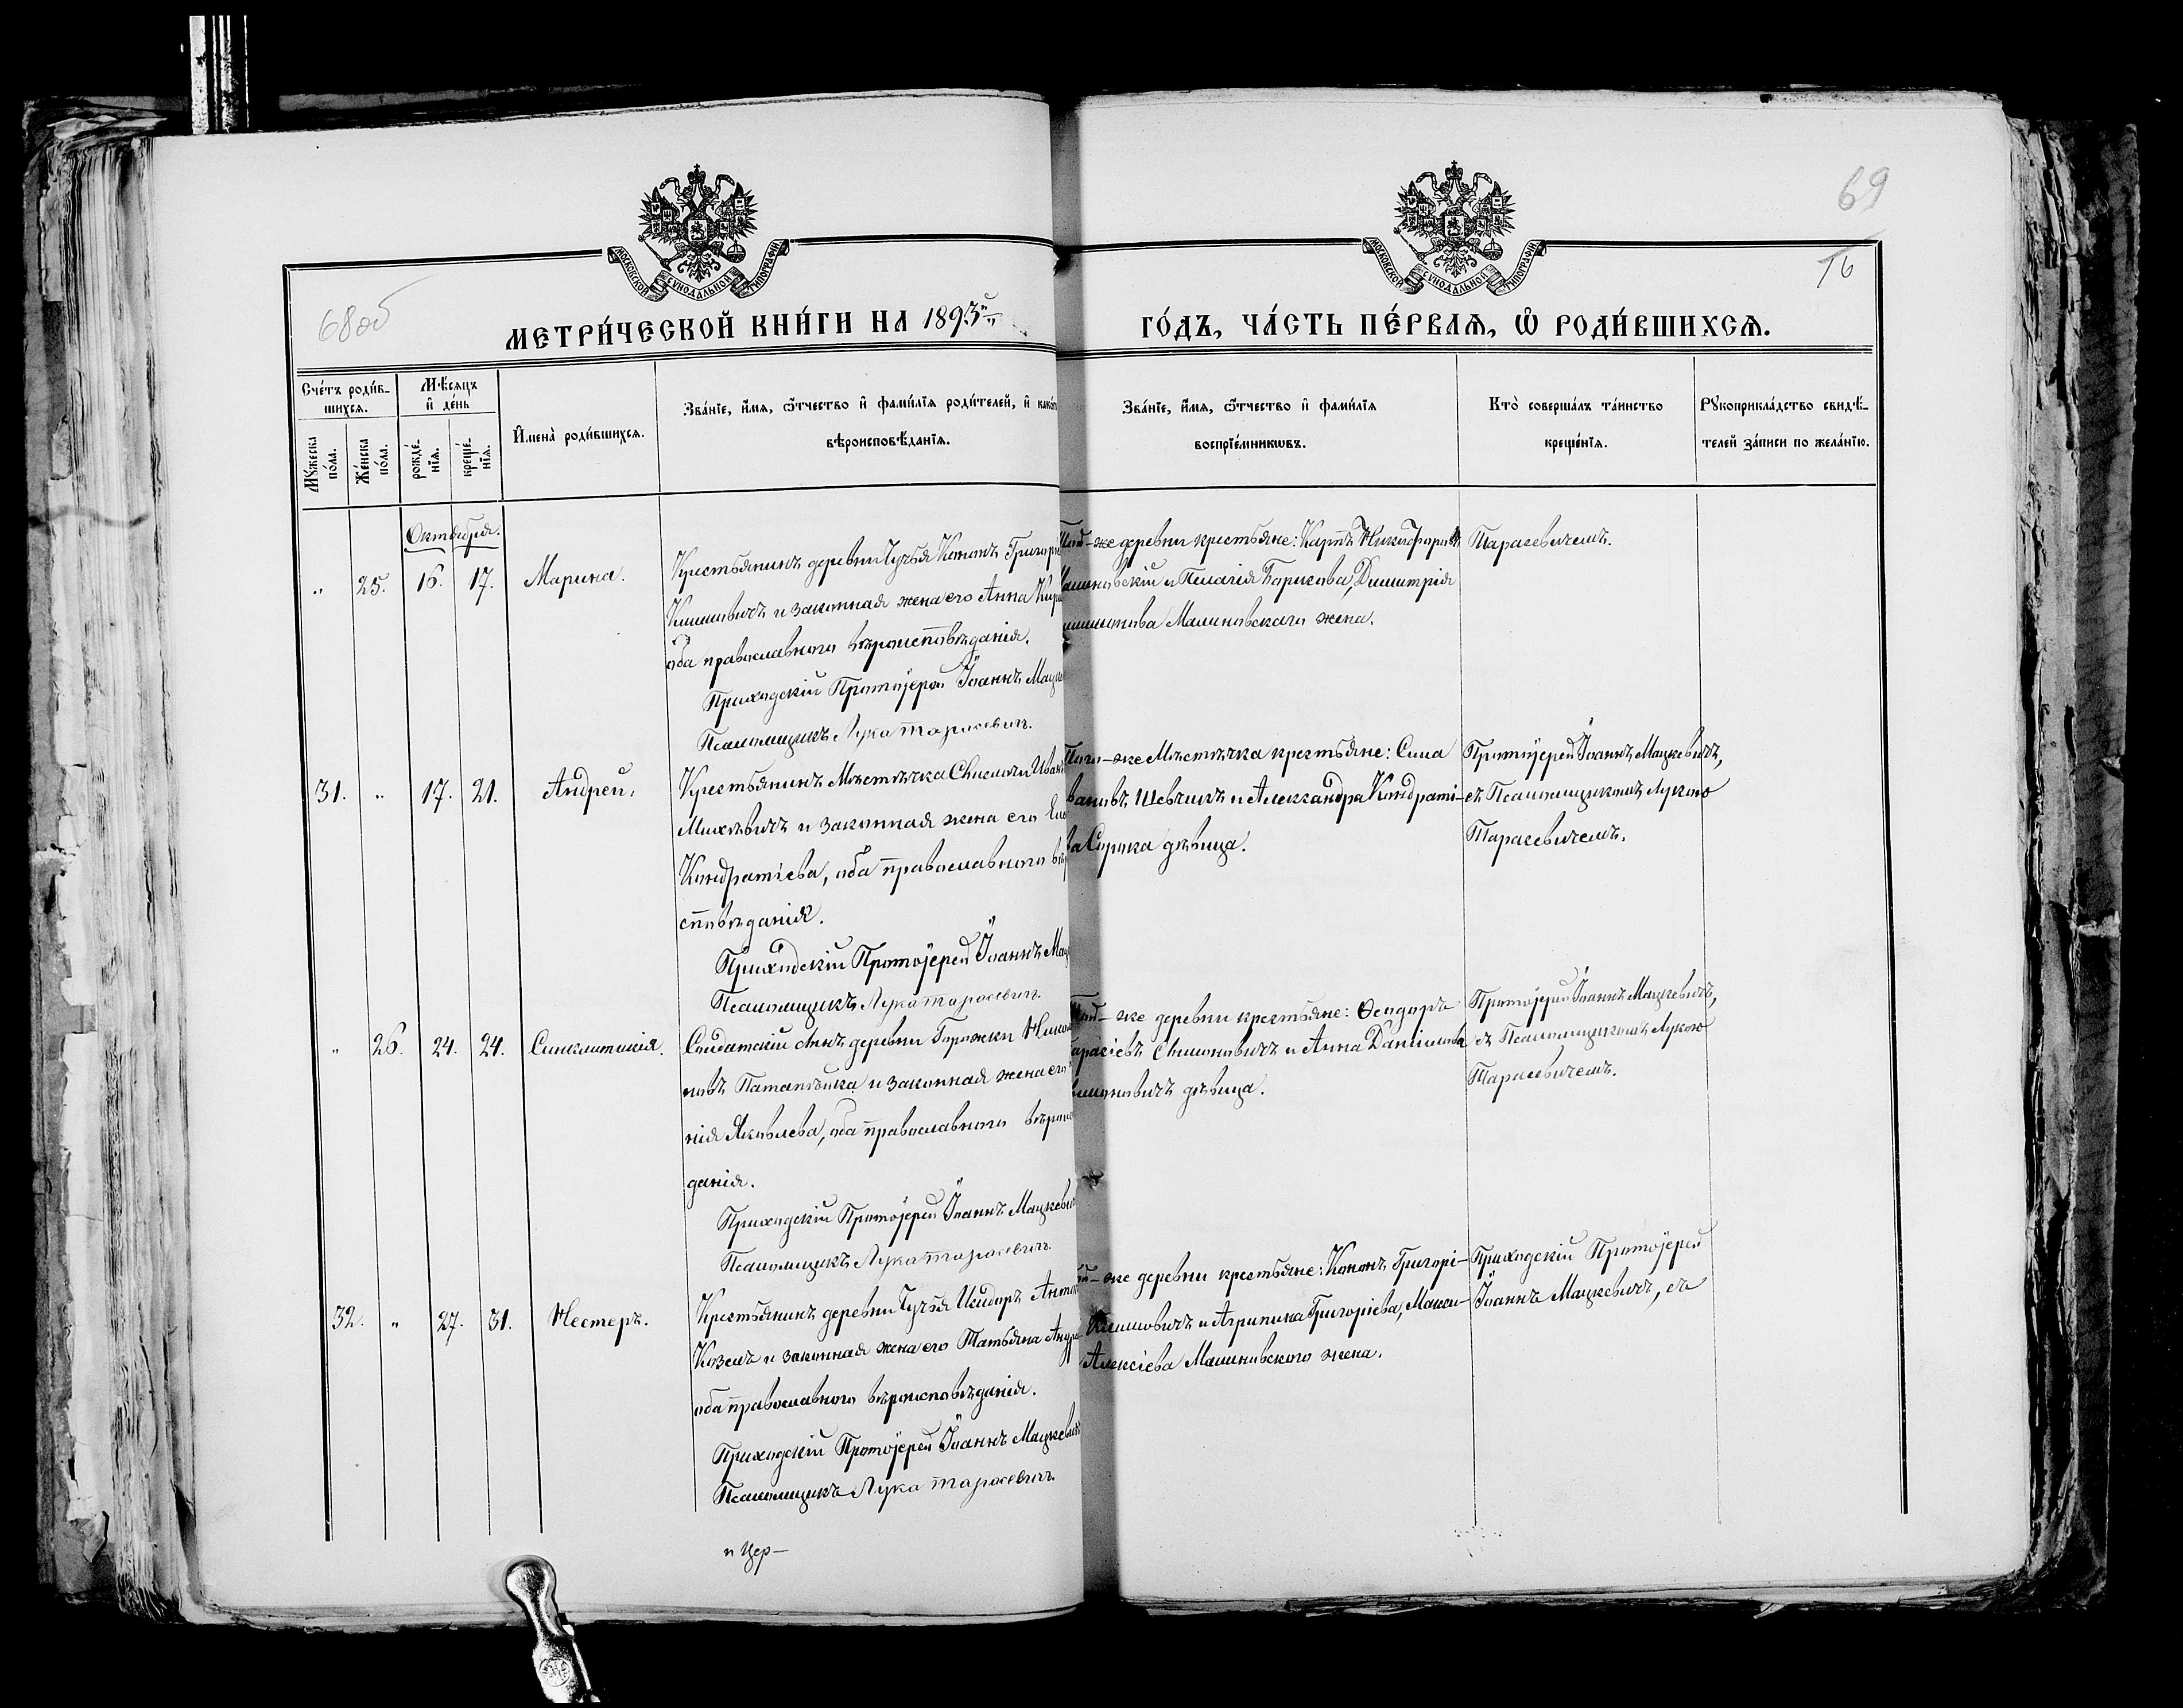 69
МОСКОВСКОЙ СѴНОДАЛЬНОЙ ТИПОГРАФІИ
МОСКОВСКОЙ СѴНОДАЛЬНОЙ ТИПОГРАФІИ
68об
76
МЕТРИ́ЧЕСКОЙ КНИ́ГИ НА 1893й
ГО́ДЪ, ЧА́СТЬ ПЕ́РВАѦ, Ѡ҆ РОДИ́ВШИХСѦ.
Сче́тъ роди́в-
шихсѧ.
Мꙋ́жеска
по́ла.
Же́нска
по́ла.
Мѣ́сѧцъ
и҆ де́нь
рожде́-
нїѧ.
креще́-
нїѧ.
И҆мена̀ роди́вшихсѧ.
Зва́нїе, и҆́мѧ, ѻ҆́тчество и҆ фами́лїѧ роди́телей, и҆ како́гѡ
вѣроисповѣ́данїѧ.
Зва́нїе, и҆́мѧ, ѻ҆́тчество и҆ фами́лїѧ
воспрїе́мникѡвъ.
Кто̀ соверша́лъ та́инство
креще́нїѧ.
Рꙋкоприкла́дство свидѣ́-
телей за́писи по жела́нїю.
Октября.
" 25. 16. 17. Марина.
Крестьянинъ деревни Гузья Кононъ Григорі
Климовичъ и законная жена его Анна
оба православнаго вѣроисповѣданія.
Приходскій Протоіерей Іоаннъ Мацке
Псаломщикъ Лука Тарасевич.
Той-же деревни крестьяне: Карпъ Никифоровъ
Малиновскій и Пелагія Борисова, Димитрія
Малиновскаго жена.
Тарасевичемъ.
31. " 17. 21. Андрей.
Крестьянинъ Мѣстечка Свислочи Иван
Михневичъ и законная жена его
Кондратіева, оба православнаго вѣр
сповѣданія.
Приходскій Протоіерей Іоаннъ Мац
Псаломщикъ Лука Тарасевич.
Того-же Мѣстечка крестьяне: Сила
Шевчикъ и Александра Кондраті-
ва Сорока дѣвица.
Протоіерей Іоаннъ Мацкевичъ,
съ Псаломщикомъ Лукою
Тарасевичемъ.
" 26. 24. 24. Синклитикія.
Солдатскій сынъ деревни Горожки
новъ Потапейка и законная жена его
нія Яковлева, оба православнаго вѣроис
данія.
Приходскій Протоіерей Іоаннъ Мацкевич
Псаломщикъ Лука Тарасевич.
Той-же деревни крестьяне: Ѳеодоръ
Тарасіевъ Симоновичъ и Анна Даніилова
Симоновичъ дѣвица.
Протоіерей Іоаннъ Мацкевичъ,
съ Псаломщикомъ Лукою
Тарасевичемъ.
32. " 27. 31. Несторъ.
Крестьянинъ деревни Гузья Исидоръ Антон
Козелъ и законная жена его Татьяна Андре
оба православнаго вѣроисповѣданія.
Приходскій Протоіерей Іоаннъ Мацкевич
Псаломщикъ Лука Тарасевич.
ой-же деревни крестьяне: Кононъ Григорі-
Климовичъ и Агрипина Григоріева, Макси-
Алексіева Малиновскаго жена.
Приходскій Протоіерей
Іоаннъ Мацкевичъ, съ
и Цер-